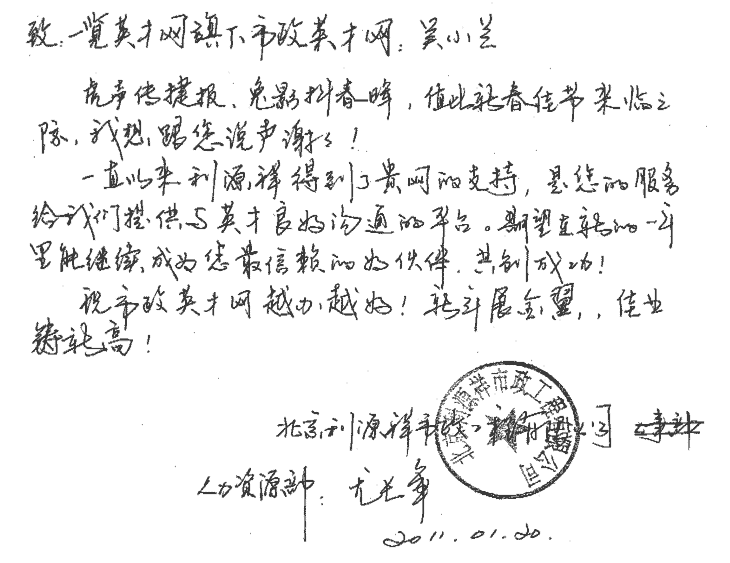 致：一览英才网旗下市政英才网：吴小兰
虎声传捷报、兔影抖春晖，值此新春佳节来临之
际，我想跟您说声谢谢！
一直以来利源祥得到了贵网的支持，是您的服务
给我们提供与英才良好沟通的平台。期望在新的一年
里能继续成为您最信赖的好伙伴，共创成功！
祝市政英才网越办越好！新年展金翼，，佳业
铸新高！
北京利源祥市政工程有限公司
人力资源部：尤
2011.01.20.